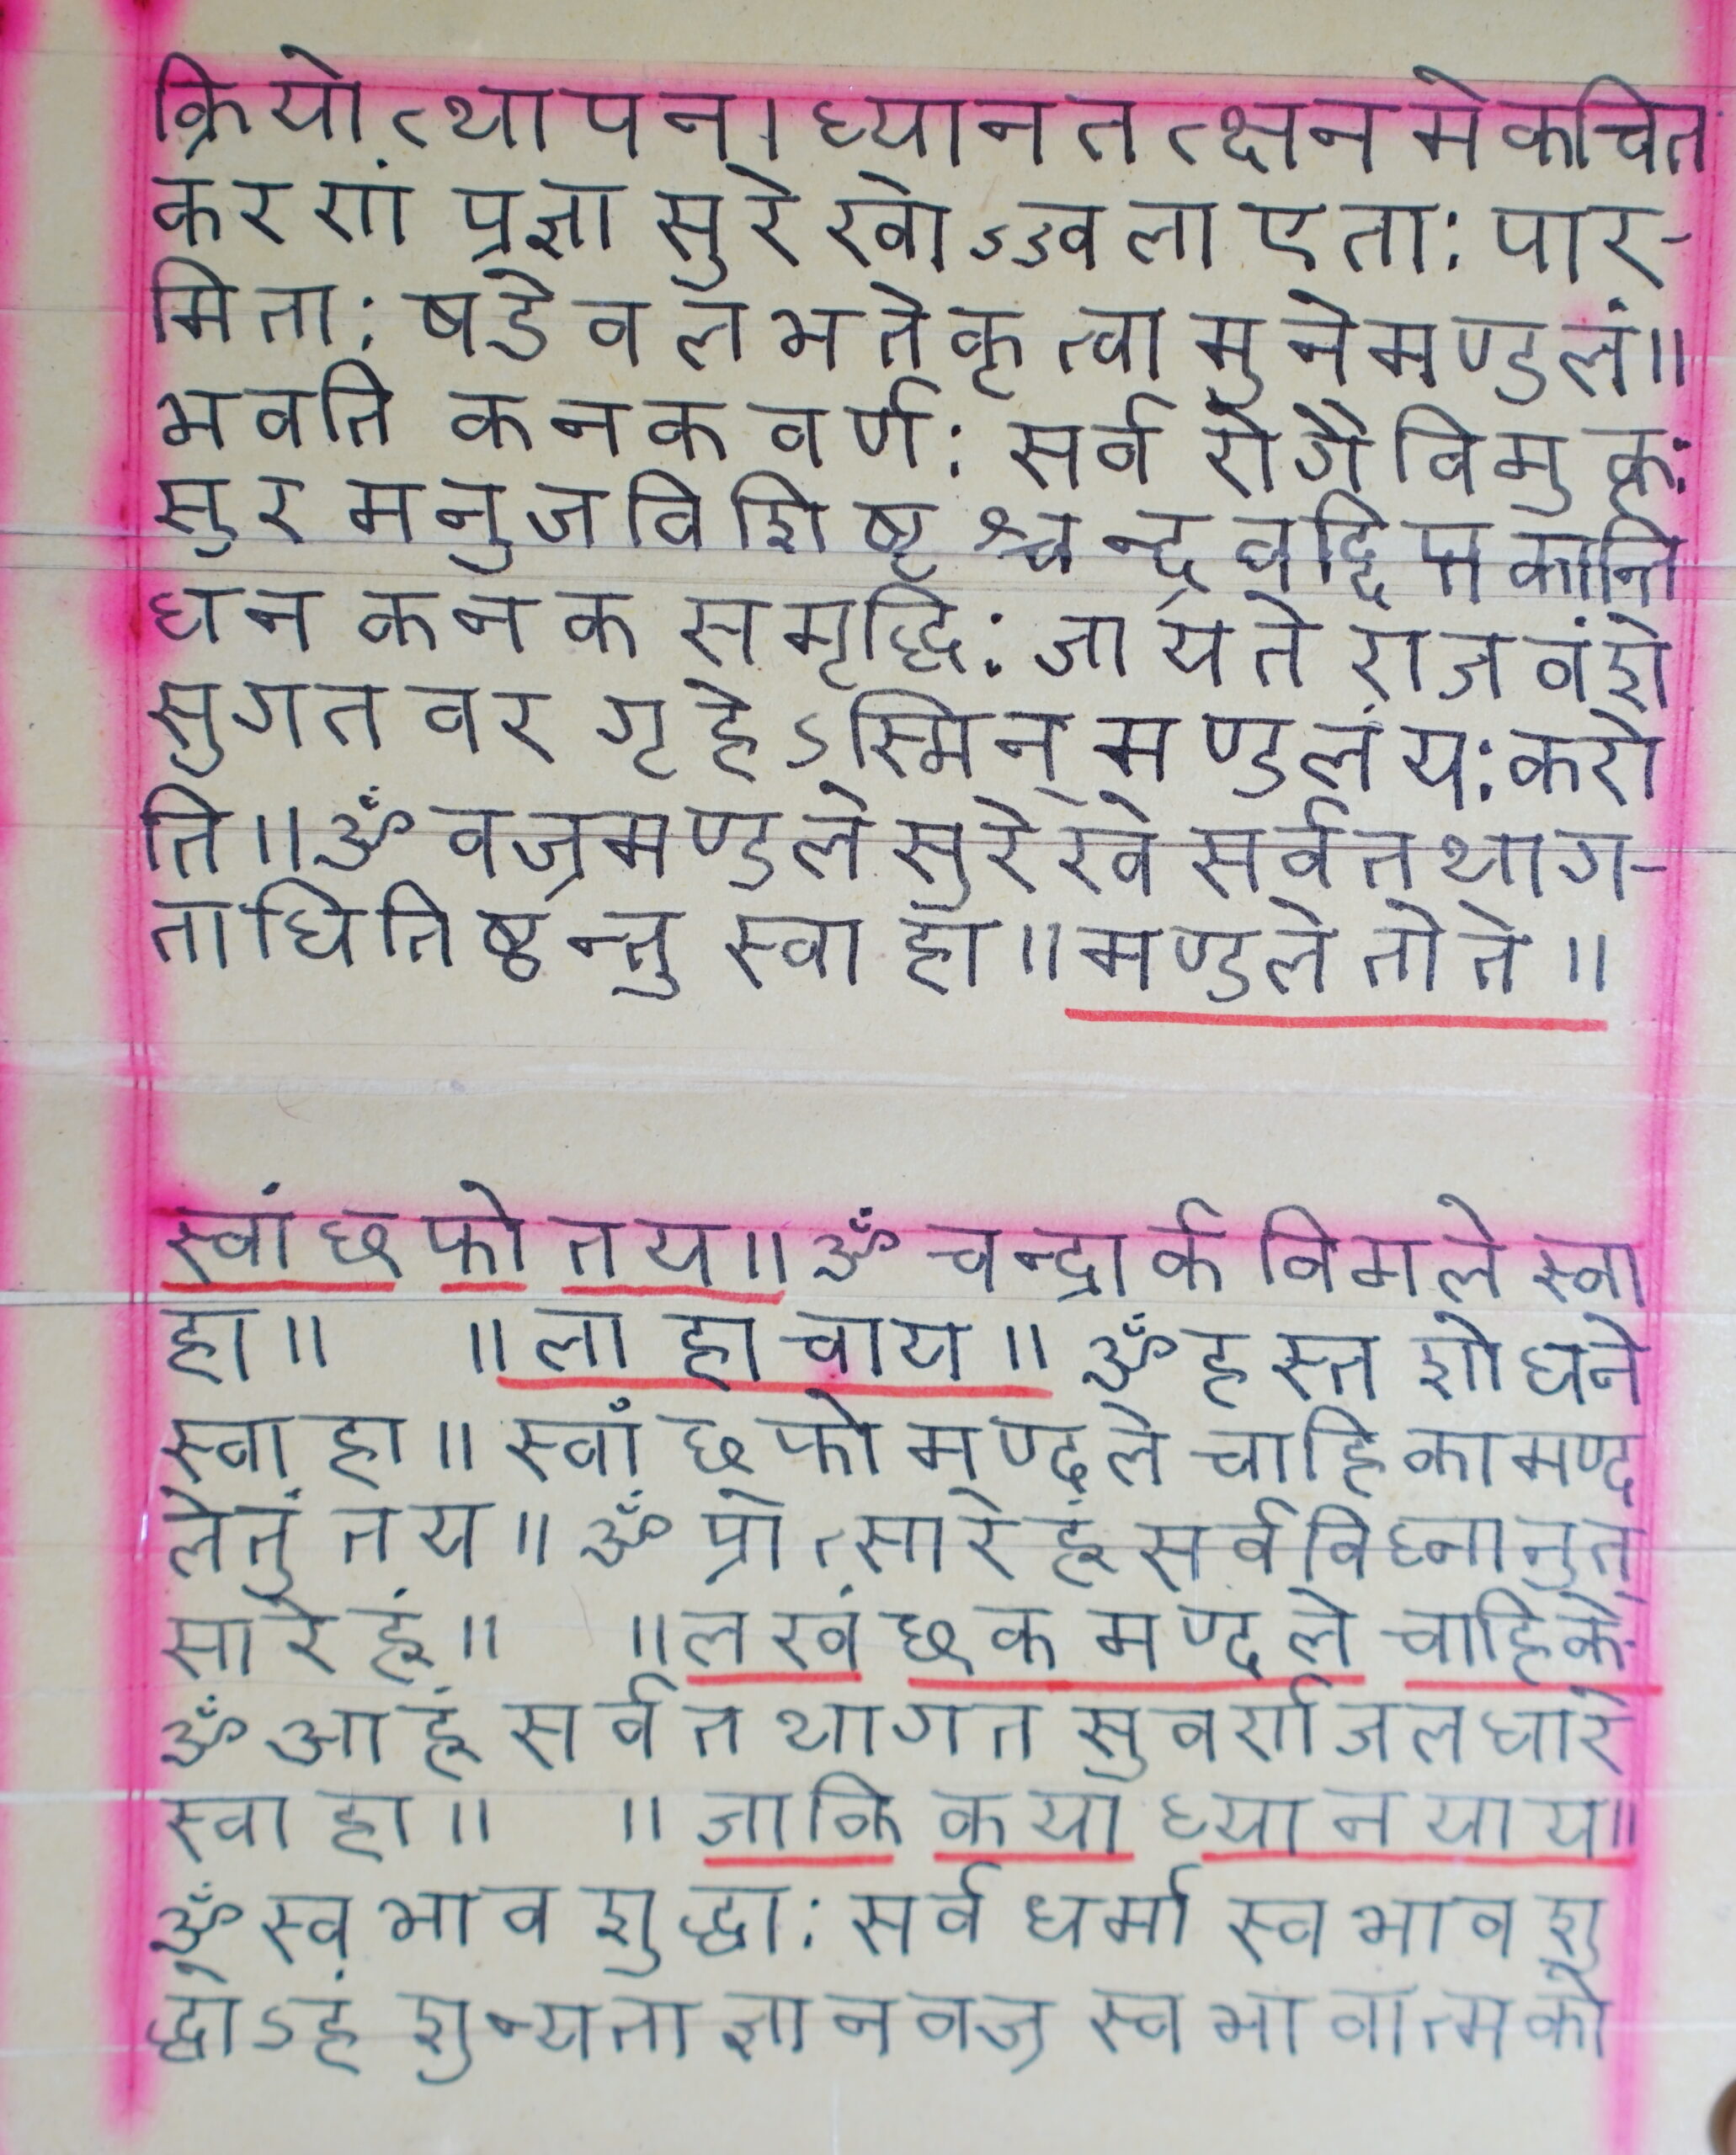 क्रियोत्थापन।ध्यानतत्क्षनमेकचित
करणं प्रज्ञा सुरेखोऽऽवला एताः पार-
मिताः षडेवलभतेकृत्वा मुनेमण्डलं॥
भवति कनक वर्णः सर्व रोगै विमुक्तः
सुर मनुज विशिष्ट श्चन्द्रवद्दिप्त कान्ति
धन कनक समृद्धिः जायते राजवंशे
सुगत वर गृहेऽस्मिन् मण्डलं यः करो
ति॥ ॐ वज्रमण्डले सुरेखे सर्वतथाग-
ताधितिष्ठन्तु स्वाहा॥ मण्डले तोते॥
स्वां छफो तय॥ ॐ चन्द्रार्क विमले स्वा
हा॥ ॥ला हा चाय॥ ॐ हस्त शोधने
स्वाहा॥ स्वां छफो मण्दले चाहिका मण्द
लेतुं तय॥ ॐ प्रोत्सारे हूं सर्व विघ्नानुत्
सारे हूं॥ ॥लखं छक मण्दले चाहिके
ॐ आ हूं सर्व तथागत सुवर्ण जलधारे
स्वाहा॥ ॥जाकि कया ध्यान याय॥
ॐ स्वभाव शुद्धाः सर्व धर्मा स्वभाव शु
द्धोऽहं शुन्यता ज्ञान वज्र स्वभावात्मको